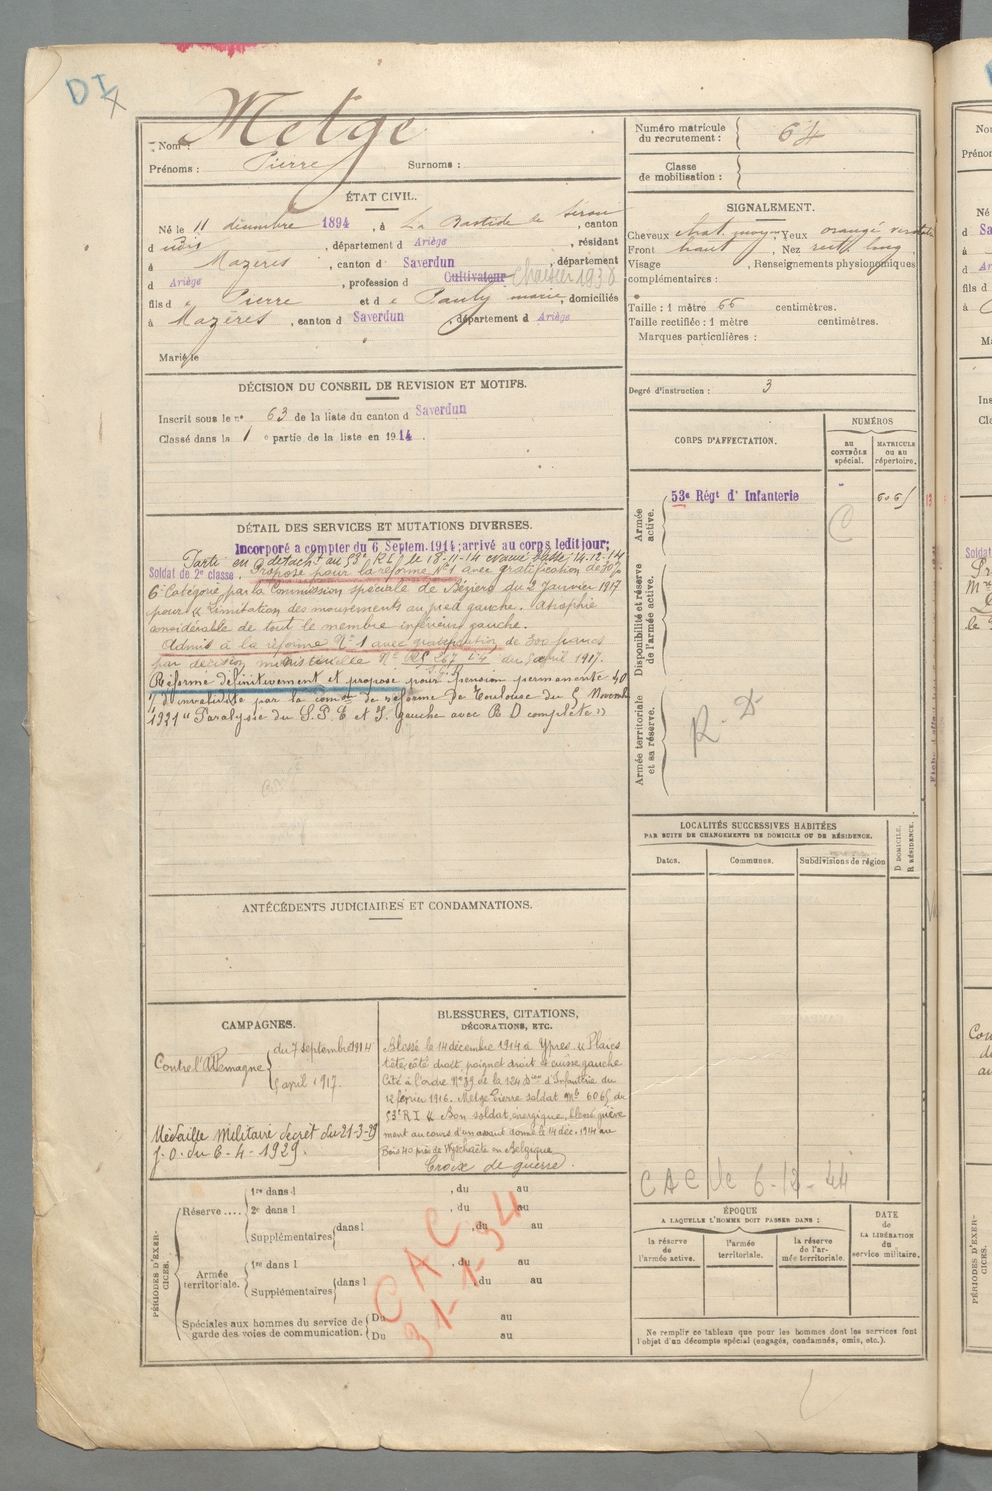 DI
Metge
Nom :
Prénoms : Pierre Surnoms :
Numéro matricule du recrutement : 64
Classe de mobilisation :
ÉTAT CIVIL.
Né le 11 décembre 1894, à La Bastide de Sérou, canton
d, département d Ariège, résidant
à Mazères, canton d Saverdun, département
d Ariège, profession d Cultivateur 1938
fils d e Pierre et d e Pauly marie, domiciliés
à Mazères, canton d Saverdun, département d Ariège
Marié le
SIGNALEMENT.
Cheveux chat. moyen, Yeux orangé verdâtre
Front haut, Nez rect. long
Visage, Renseignements physionomiques
complémentaires :
Taille : 1 mètre 66 centimètres.
Taille rectifiée : 1 mètre centimètres.
Marques particulières :
Degré d'instruction : 3
DÉCISION DU CONSEIL DE REVISION ET MOTIFS.
Inscrit sous le n° 63 de la liste du canton d Saverdun
Classé dans la 1 e partie de la liste en 1914.
CORPS D'AFFECTATION.
NUMÉROS
au CONTRÔLE spécial.
MATRICULE ou au répertoire.
Armée active.
53e Régt d' Infanterie 6065
Disponibilité et réserve de l'armée active.
Armée territoriale et sa réserve.
R. D.
DÉTAIL DES SERVICES ET MUTATIONS DIVERSES.
Incorporé a compter du 6 Septem. 1914; arrivé au corps ledit jour;
Parti en détacht au 53e RI le 18-11-14 évacué blessé 14-12-14
Soldat de 2e classe. Proposé pour la réforme N°1 avec gratification de
6e Catégorie par la Commission spéciale de Béziers du 2 Janvier 1917
pour « Limitation des mouvements au pied gauche. Atrophie
considérable de tout le membre inférieur gauche.
Admis à la réforme N° 1 avec gratification de 300 francs
par décision ministérielle N° du 5 april 1917.
Réformé définitivement et proposé pour pension permanente 40
% d'invalidité par la comon de réforme de Toulouse du 5 Novembre
1921 « Paralysie du S.P.E et I. gauche avec R D complète »
LOCALITÉS SUCCESSIVES HABITÉES
PAR SUITE DE CHANGEMENTS DE DOMICILE OU DE RÉSIDENCE.
Dates. Communes. Subdivisions de région
D DOMICILE.
R RÉSIDENCE.
CAC de 6-12-44
ANTÉCÉDENTS JUDICIAIRES ET CONDAMNATIONS.
CAMPAGNES.
Contre l'Allemagne du 7 septembre 1914
5 april 1917.
Médaille Militaire décret du 21-3-29
J.O. du 6-4-1929.
BLESSURES, CITATIONS,
DÉCORATIONS, ETC.
Blessé le 14 décembre 1914 à Ypres « Plaies
tête côté droit, poignet droit et cuisse gauche
Cité à l'ordre N° 89 de la 124 Dion d'Infanterie du
12 février 1916. Metge Pierre soldat Mle 6065 du
53e R I « Bon soldat énergique, blessé griève
ment au cours d'un assaut donné le 14 déc. 1914 au
Bois 40 près de Wyschaete en Belgique
Croix de guerre.
PÉRIODES D'EXERCICES.
Réserve ....
1re dans l, du au
2e dans l, du au
Supplémentaires dans l, du au
Armée territoriale.
1re dans l, du au
Supplémentaires dans l, du au
Spéciales aux hommes du service de garde des voies de communication.
Du au
Du au
CAC
31-1-34
ÉPOQUE
A LAQUELLE L'HOMME DOIT PASSER DANS :
la réserve de l'armée active.
l'armée territoriale.
la réserve de l'armée territoriale.
DATE de LA LIBÉRATION du service militaire.
Ne remplir ce tableau que pour les hommes dont les services font
l'objet d'un décompte spécial (engagés, condamnés, omis, etc.).